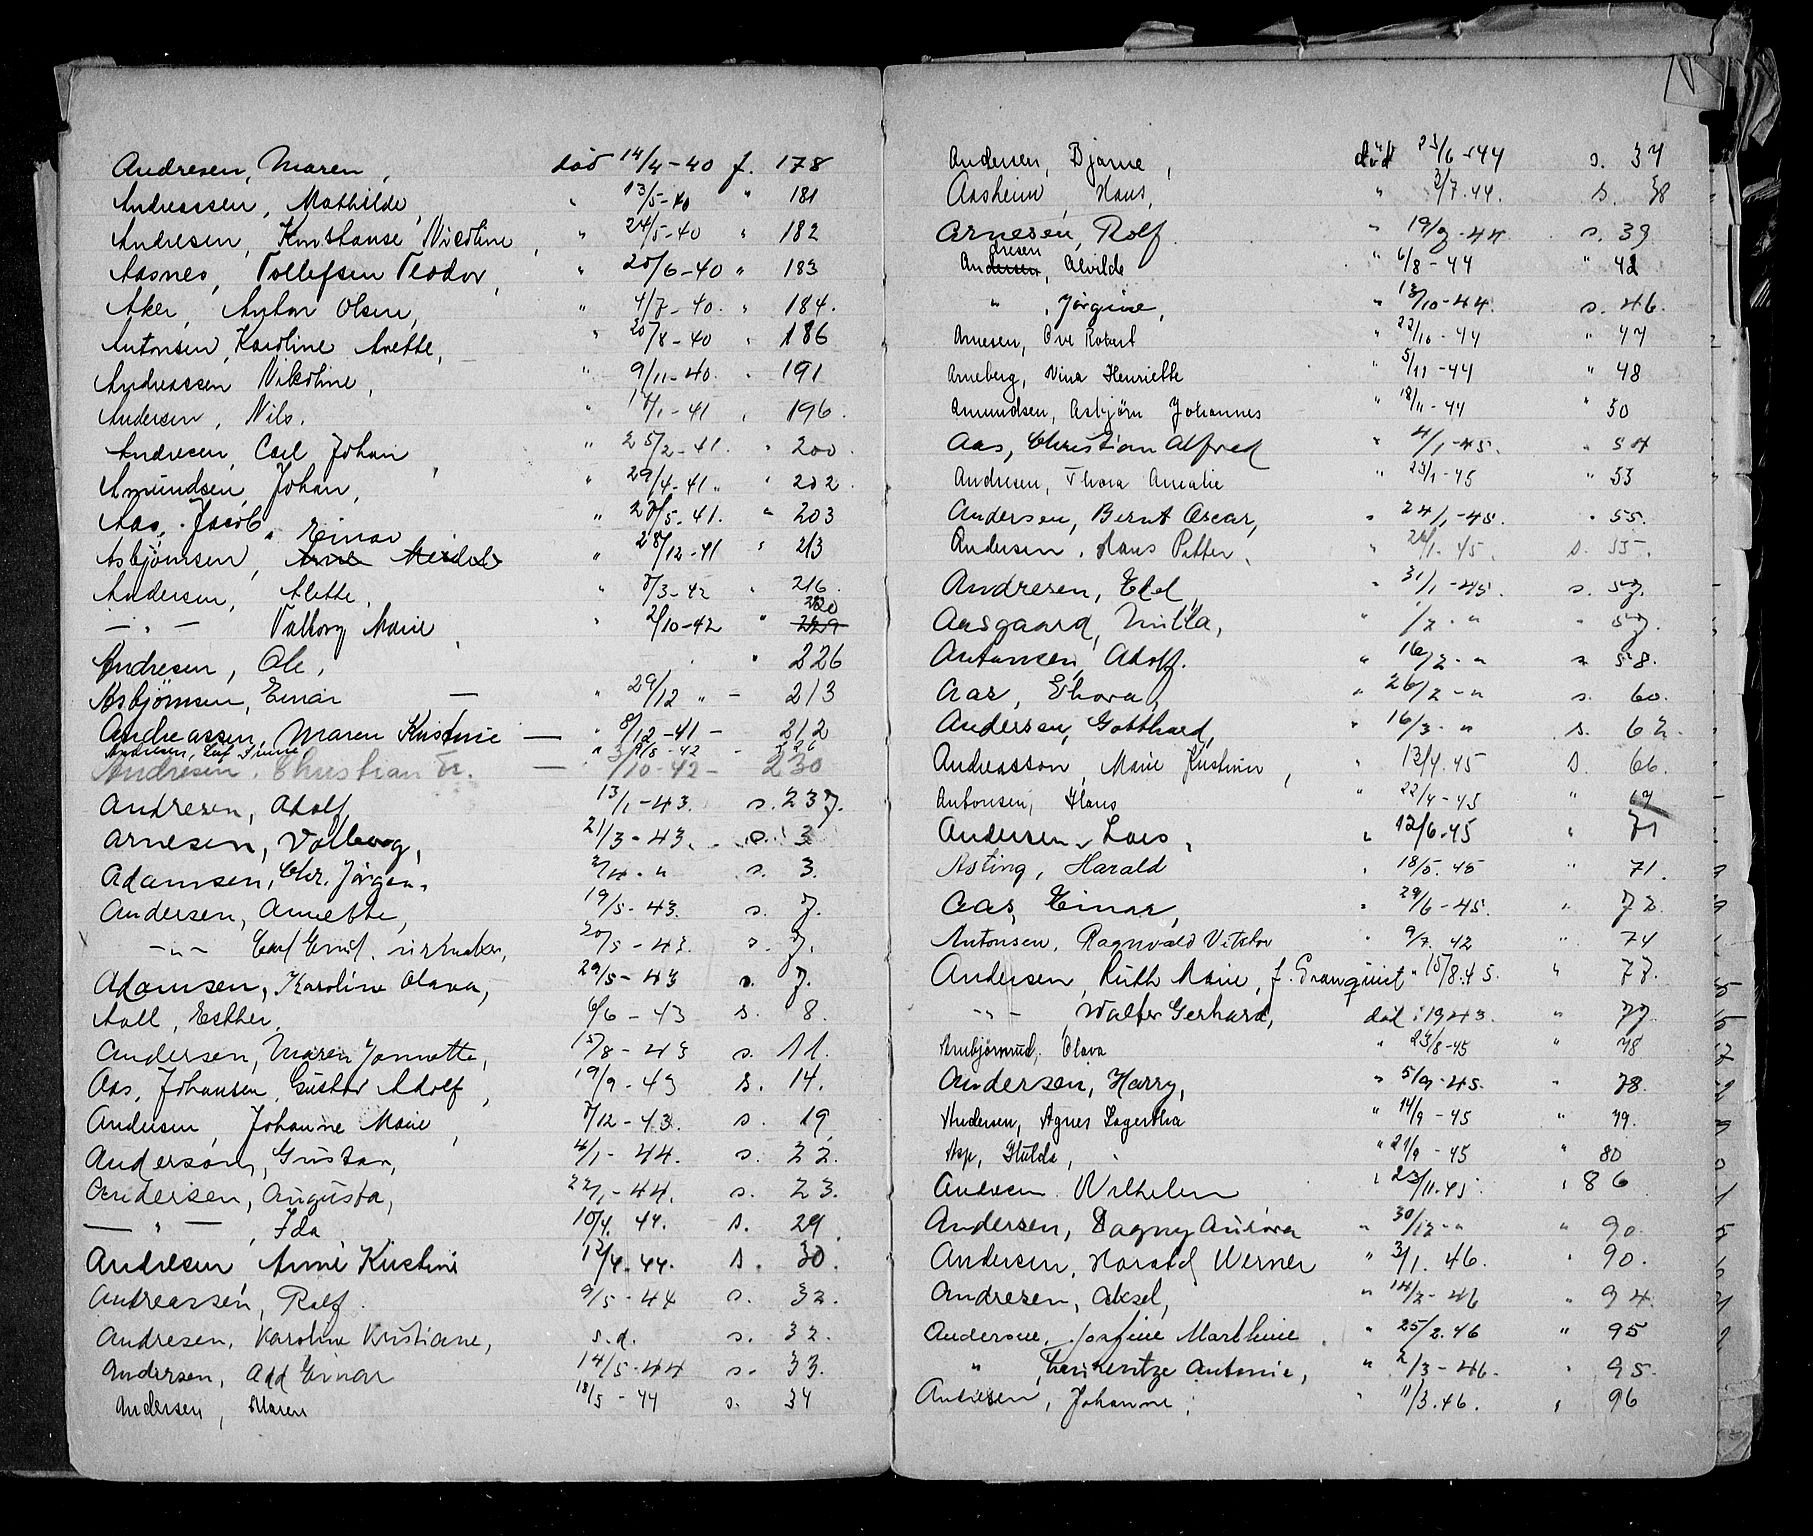 Andresen, Maren, død 14/4-40 f. 178
Andreassen, Mathilde, " 13/5-40 " 181
Andresen, Konstanse Nicoline, " 24/5-40 " 182
Aasnes, Tollefsen Teodor, " 20/6-40 " 183
Aker, Anton Olsen, " 4/7-40. " 184.
Antonsen, Karoline Anette, " 20/8-40 " 186
Andreassen Nikoline, " 9/11-40. " 191
Andersen, Nils. " 17/1-41 " 196.
Andresen, Carl Johan, " 25/2-41. " 200.
Amundsen, Johan, " 29/4-41. " 202.
Aas, Jacob, " 28/5-41. " 203
Einar
Asbjørnsen, " 28/12-41 " 213
Andersen, Alette, " 8/3-42 " 216
220
— " — Valborg Marie, " 2/10-42 " 229
Andresen, Ole, " 226
Asbjørnsen, Einar — " 29/12 " - 213
Andreassen, Maren Kristine — " 8/12-41 - 212
Andresen, Christian Fr. — /10-42 - 230
Andresen, Adolf 13/1-43. s. 237.
Arnesen, Valborg, 21/3-43. s. 3
Adamsen, Chr. Jørgen. 2/4. " s. 3.
Andersen, Annette, 19/5-43. s. 7.
— " — Carl Emil. 20/5-43. s. 7.
Adamsen, Karoline Olava, 29/5-43 s. 7.
Aall, Esther, 6/6-43 s. 8.
Andersen, Maren Jannette, 15/8-43 s. 11.
Aas, Johansen, Gustav Adolf, 19/9-43 s. 14.
Andersen, Johanne Marie, 8/12-43. s. 19,
Anderson, Gustav, 4/1-44. s. 22.
Andersen, Augusta, 22/1-44. s. 23.
— " —, Ida, 10/4. 44. s. 29.
Andresen, Anne Kristine 12/4-44. s. 30.
Andreassen, Rolf. 9/5-44 s. 32.
Andresen, Karoline Kristiane, s.d. s. 32.
Andersen, Odd Einar 14/5-44 s. 33.
Andersen, Maren 18/5-44 s. 34
Andersen, Bjarne, død 23/6-44 s. 37
Aasheim, Hans, " 3/7.44. s. 38
Arnesen, Rolf " 19/7-44 s. 39
dresen
Andersen, Alvilde " 6/8-44 " 42
" , Jørgine, " 13/10-44. s. 46.
Arnesen, Ove Robert " 22/10-44 " 47
Arneberg, Nina Henriette " 5/11-44 " 48
Amundsen, Asbjørn Johannes " 18/11-44 " 50
Aas, Christian Alfred " 4/1-45. " 54
Andresen, Thora Amalie " 23/1-45 " 53
Andersen, Bernt Oscar, " 24/1-45. " 55.
Andersen, Hans Petter, " 24/1-45. s. 55.
Andresen, Eld, " 31/1-45. s. 57.
Aasgaard, Milla, " 1/2. " " 57.
Antonsen, Adolf. " 16/2. " s. 58.
Aas, Thora, " 26/2-" s. 60.
Andersen, Gotthard, " 16/3. " s. 62.
Andreasson, Marie Kristine, " 12/4.45 s. 66.
Antonsen, Hans " 22/4-45 " 69
Andersen, Lars, " 12/6-45 " 71
Asting, Harald " 18/5.45 " 71.
Aas, Einar, " 29/6-45. " 72.
Antonsen, Ragnvald " 9/7. 42 " 74
Andersen, Ruth Marie, f. Granquist " 15/8.45. " 77.
— " — , Walter Gerhard, død i 1943. " 77
Arnbjørnrud, Olava " 23/8-45 " 78
Andersen, Harry, " 5/9-45. " 78.
Andersen, Agnes Lagertha " 14/9-45 " 79.
Asp, Hulda, " 21/9-45 " 80
Andresen Wilhelm " 23/11.45. " 86
Andersen, Dagny Aurora " 30/12-" " 90.
Andersen, Harald Werner " 3/1. 46. " 90.
Andresen, Aksel, " 14/2-46 " 94.
Andersen, Josefine Marthine " 25/2.46 " 95
" , Laurentze Antonie, " 2/3-46. " 95.
Andresen, Johanne, " 11/3.46. " 96